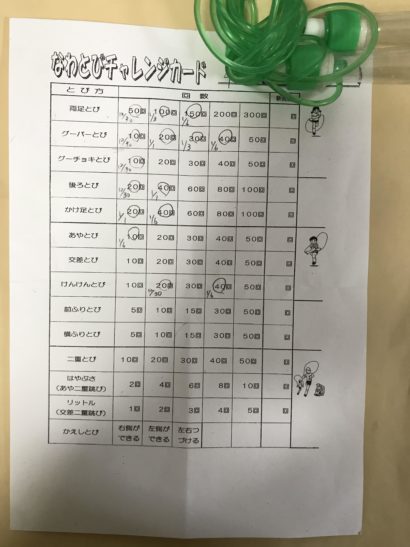 なわとびチャレンジカード
とび方 回数
両足とび 50回 100回 150回 200回 300回 回
グーパーとび 10回 20回 30回 40回 50回 回
グーチョキとび 10回 20回 30回 40回 50回 回
後ろとび 20回 40回 60回 80回 100回 回
かけ足とび 20回 40回 60回 80回 100回 回
あやとび 10回 20回 30回 40回 50回 回
交差とび 10回 20回 30回 40回 50回 回
けんけんとび 10回 20回 30回 40回 50回 回
前ふりとび 5回 10回 15回 30回 50回 回
横ふりとび 5回 10回 15回 30回 50回 回
二重とび 10回 20回 30回 40回 50回 回
はやぶさ
(あや二重跳び) 2回 4回 6回 8回 10回 回
リットル
(交差二重跳び) 1回 2回 3回 4回 5回 回
かえしとび 右側が
できる 左側が
できる 左右つ
づける